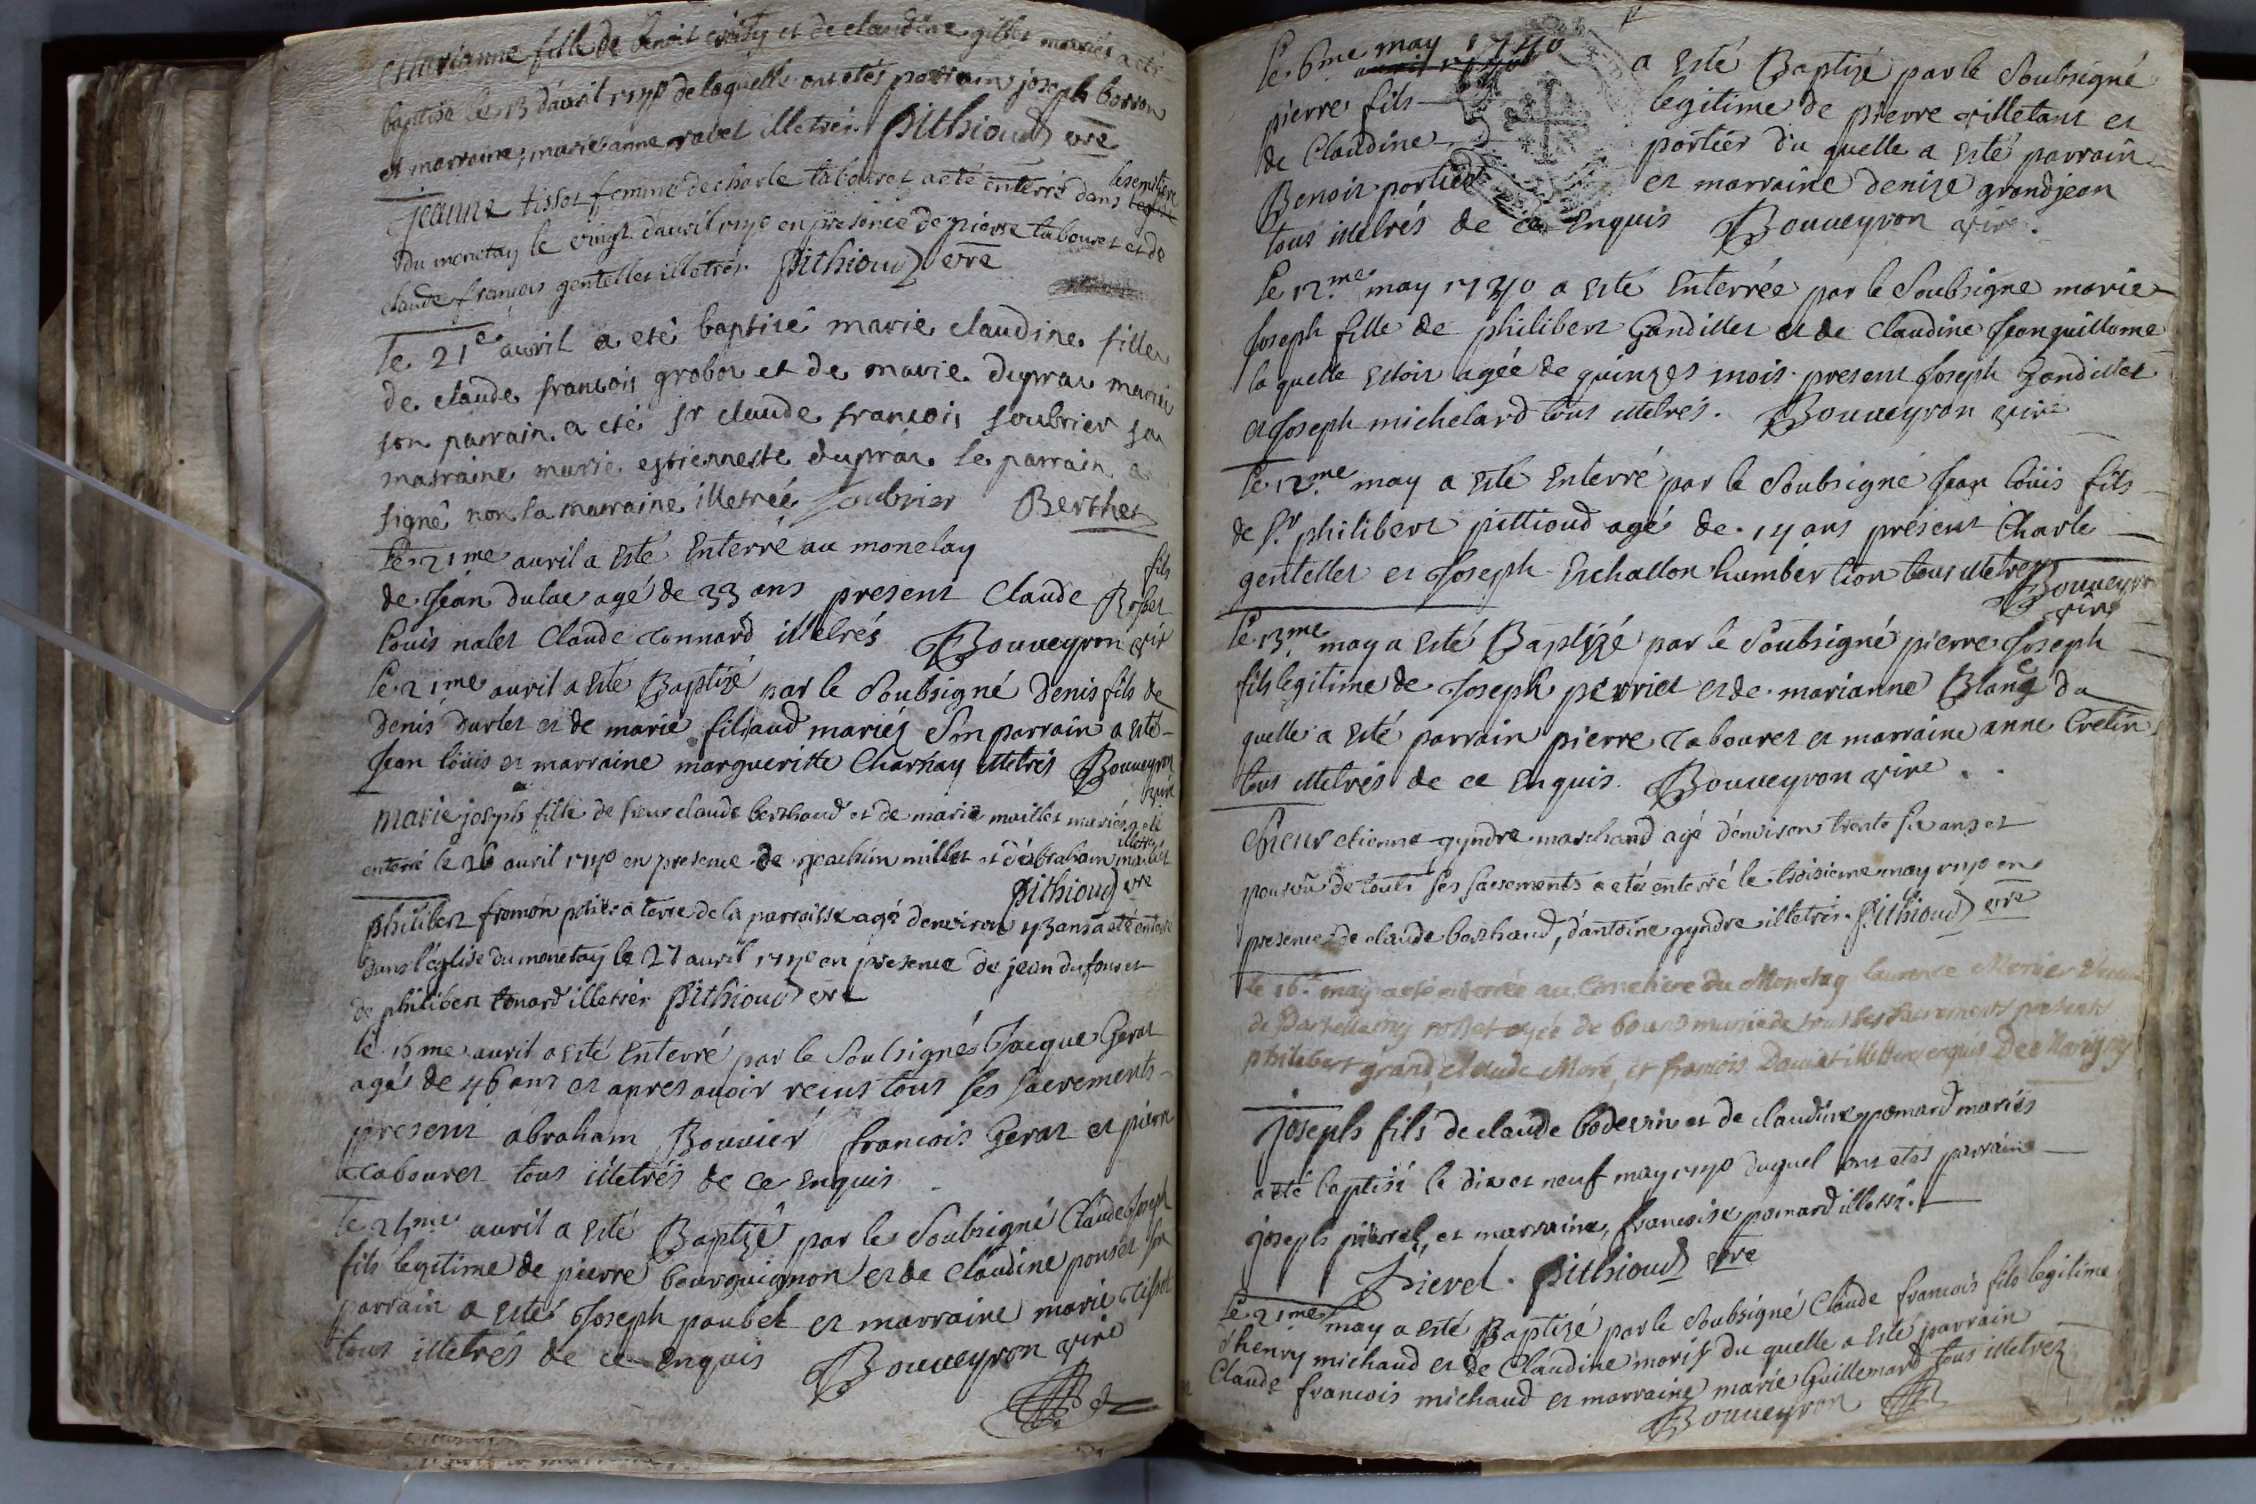 Marianne fille de benoit et de claudine gillet mariés a eté
baptisé le 13 d'auril 1740 de laquelle ont etés parrain joseph borron
et marraine, marie anne rabel illetrés. Pithioud vre
jeanne tissot femme de charle tabouret a eté enterré dans le semitiere
du monetay le vingt d'auril 1740 en presence de pierre tabouret et de
claude françois gentellet illetrés. Pithioud vre
le 21e auril a eté baptisé marie claudine fille
de claude francois grobon et de marie duprat mariés
son parrain a eté sr claude francois soubrier sa
marraine marie estiennette duprat le parrain a
signé non la marraine illetrée soubrier Berthet
le 21me auril a esté Enterré au monetay fils
de Jean dulac agé de 33 ans present Claude Rosset
louis nalet Claude tonnard illetrés Bouueyron vire
le 21me auril a esté Baptizé par le Soubsigné denis fils de
denis durlet et de marie filliaud mariés Son parrain a esté
Jean loüis et marraine margueritte Charnay illetrés Bouueyron
vire
marie joseph fille de sieur claude berthaud et de marie maillet mariés a eté
enterré le 26 auril 1740 en presence de joachim millet et d'abraham maillet illetrés
Pithioud vre
philibert fromon potier a terre de la parroisse agé d'environ 43 ans a eté enterré
dans l'eglise du monetay le 27 auril 1740 en presence de jean dufour et
de philibert tonard illetrés Pithioud vre
le 16me auril a esté Enterré par le Soubsigné Jacque Gerat
agé de 46 ans et apres auoir recus tous ses sacrements
present abraham Bouuier francois Gerat et pierre
tabouret tous illetrés de ce Enquis
le 24me auril a esté Baptizé par le Soubsigné Claude Joseph
fils legitime de pierre bourguignon et de Claudine ponset Son
parrain a esté Joseph paubel et marraine marie tissot
tous illetrés de ce enquis Bouueyron vire
le 6me may 1740 a esté Baptizé par le Soubsigné
pierre fils legitime de pierre villetant et
de Claudine portier du quelle a esté parrain
Benoit portier et marraine denize grandjean
tous illetrés de ce Enquis Bouueyron vire.
le 12me may 1740 a esté Enterrée par le Soubsigné marie
Joseph fille de philibert Gandillet et de Claudine Jeanguillome
la quelle estoit agée de quinzes mois present Joseph Gandillet
et Joseph michelard tous illetrés. Bouueyron vire
le 12me may a esté Enterré par le Soubsigné Jean loüis fils
de Sr philibert pittioud agé de 14 ans present Charle
gentellet et Joseph Eschallon humber lion tous illetrés
Bouueyron
vire
le 13me may a esté Baptizé par le Soubsigné pierre Joseph
fils legitime de Joseph perriet et de marianne Blanc du
quelle a esté parrain pierre tabouret et marraine anne Cretin
tous illetrés de ce Enquis. Bouueyron vire.
Sieur etienne gyndre marchand agé d'environ trente six ans et
pourvû de touts ses sacrements a eté enterré le troisieme may 1740 en
presence de claude berthaud, d'antoine gyndre illetrés. Pithioud vre
le 16e may a eté enterrée au cimetiere du Monetay laurence Monier veuve
de rosset agée de 60 ans munie de tous les sacrements presents
philibert grand, claude Moré, et francois enquis
joseph fils de claude bodevin et de claudine pomard mariés
a eté baptisé le dix et neuf may 1740 duquel ont etés parrain
joseph pierrel, et marraine, francoise pomard illetré.
Pierel. Pithioud vre
le 21me may a esté Baptizé par le Soubsigné Claude francois fils legitime
d'henry michaud et de Claudine moris du quelle a esté parrain
Claude francois michaud et marraine marie Guillemard tous illetrés
Bouueyron